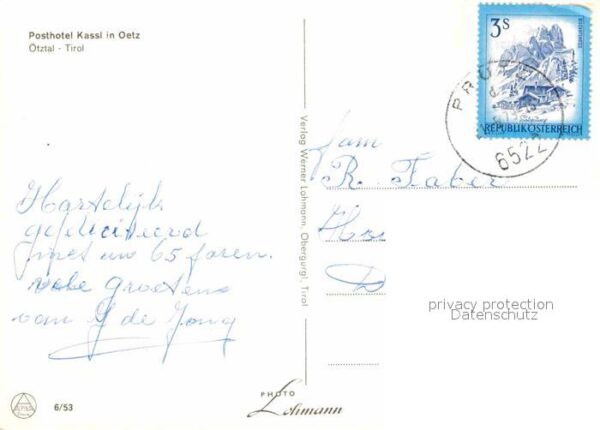 Posthotel Kassl in Oetz
Ötztal - Tirol
Hartelijk
gefeliciteerd
met uw 65 jaren.
vele groetens
van G de Jong
6/53
PHOTO
Lohmann
Verlag Werner Lohmann, Obergurgl, Tirol
3 S
REPUBLIK ÖSTERREICH
PRUTZ
6522
fam
R. Faber
privacy protection
Datenschutz